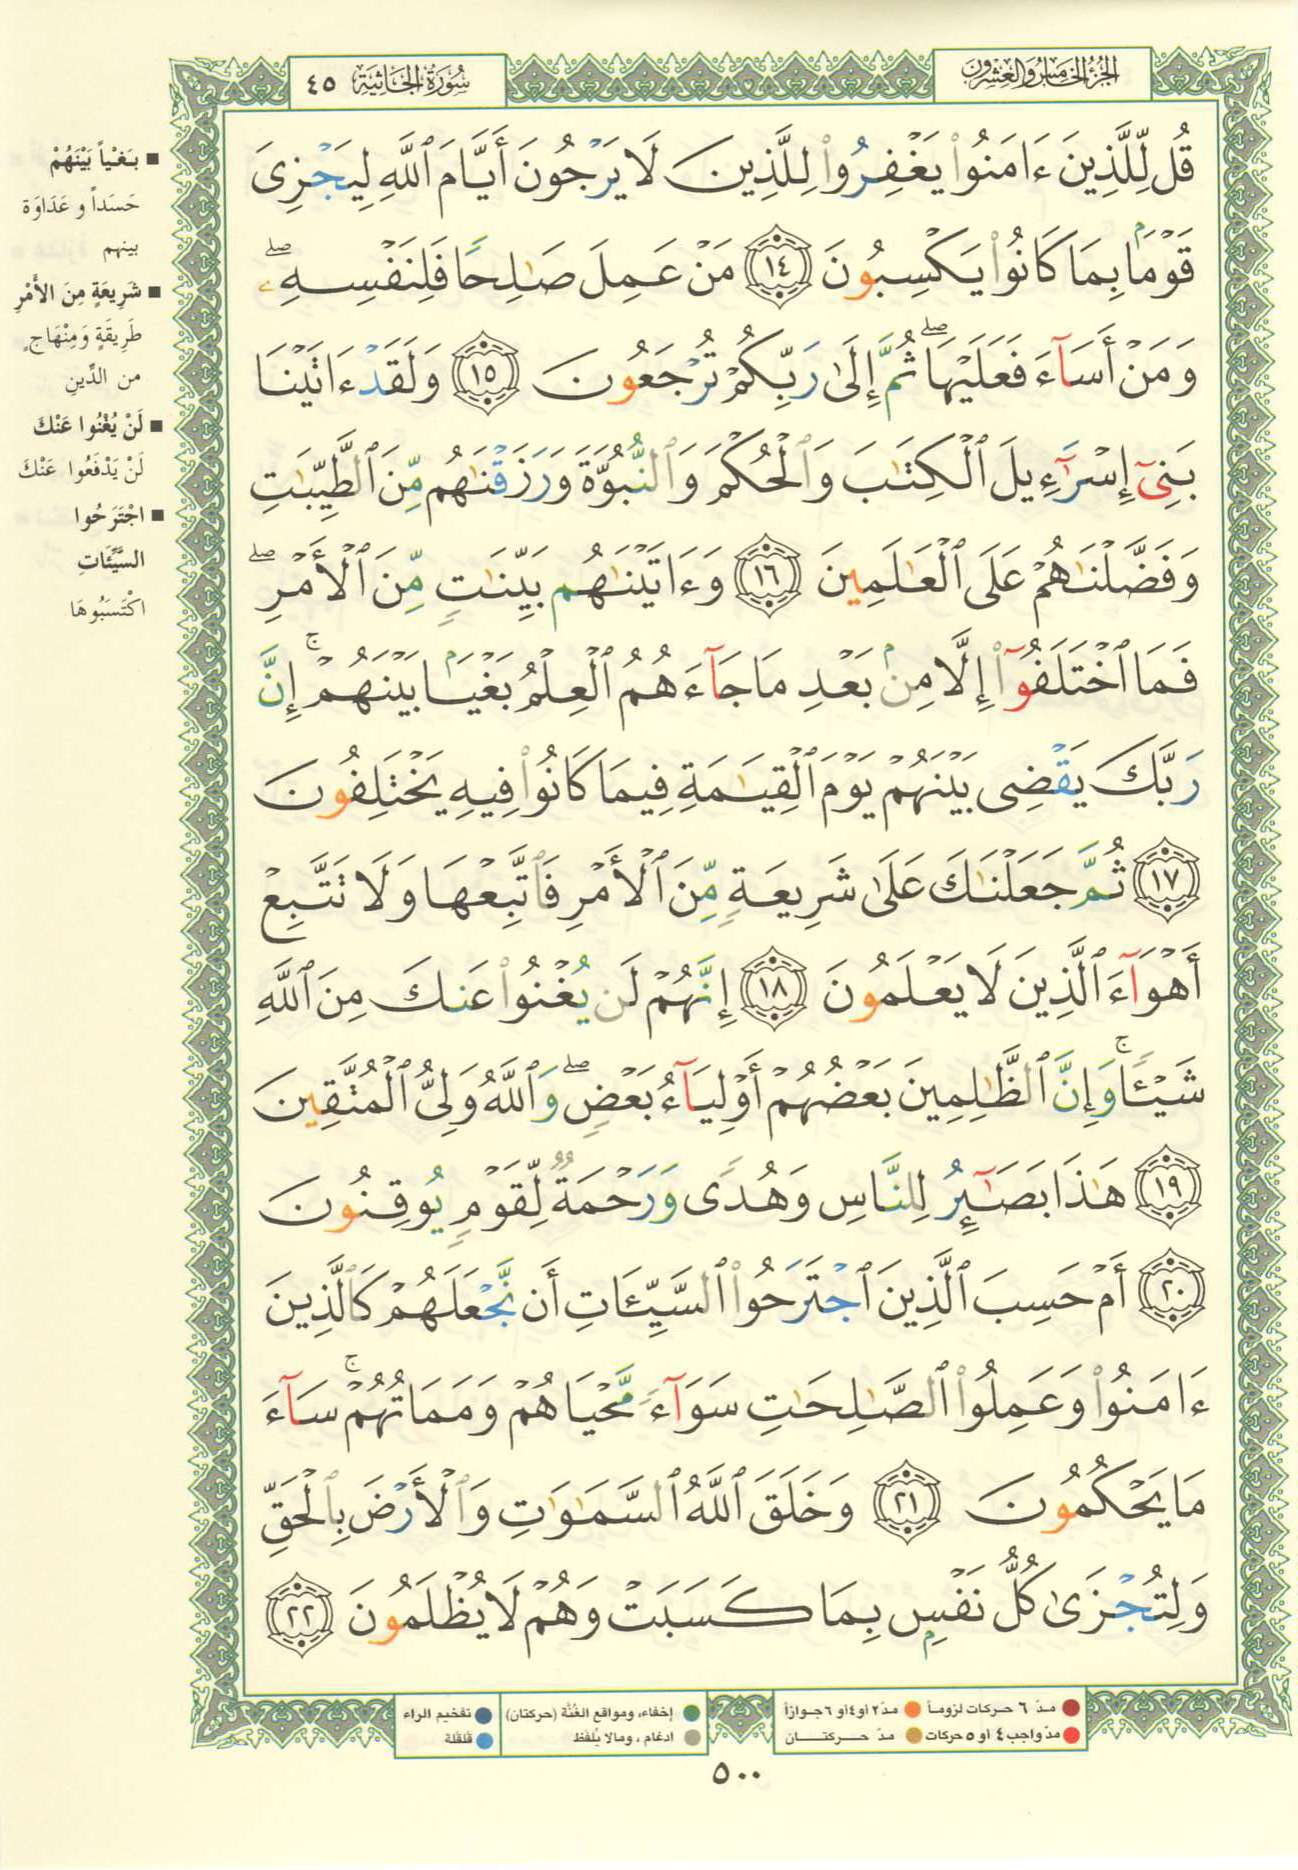 الجزء الخامس والعشرون
سُورَةُ الجَاثِيَة ٤٥
قُل لِّلَّذِينَ ءَامَنُوا۟ يَغْفِرُوا۟ لِلَّذِينَ لَا يَرْجُونَ أَيَّامَ ٱللَّهِ لِيَجْزِىَ
قَوْمًۢا بِمَا كَانُوا۟ يَكْسِبُونَ ١٤ مَنْ عَمِلَ صَـٰلِحًا فَلِنَفْسِهِۦ ۖ
وَمَنْ أَسَآءَ فَعَلَيْهَا ۖ ثُمَّ إِلَىٰ رَبِّكُمْ تُرْجَعُونَ ١٥ وَلَقَدْ ءَاتَيْنَا
بَنِىٓ إِسْرَٰٓءِيلَ ٱلْكِتَـٰبَ وَٱلْحُكْمَ وَٱلنُّبُوَّةَ وَرَزَقْنَـٰهُم مِّنَ ٱلطَّيِّبَـٰتِ
وَفَضَّلْنَـٰهُمْ عَلَى ٱلْعَـٰلَمِينَ ١٦ وَءَاتَيْنَـٰهُم بَيِّنَـٰتٍ مِّنَ ٱلْأَمْرِ ۖ
فَمَا ٱخْتَلَفُوٓا۟ إِلَّا مِنۢ بَعْدِ مَا جَآءَهُمُ ٱلْعِلْمُ بَغْيًۢا بَيْنَهُمْ ۚ إِنَّ
رَبَّكَ يَقْضِى بَيْنَهُمْ يَوْمَ ٱلْقِيَـٰمَةِ فِيمَا كَانُوا۟ فِيهِ يَخْتَلِفُونَ
١٧ ثُمَّ جَعَلْنَـٰكَ عَلَىٰ شَرِيعَةٍ مِّنَ ٱلْأَمْرِ فَٱتَّبِعْهَا وَلَا تَتَّبِعْ
أَهْوَآءَ ٱلَّذِينَ لَا يَعْلَمُونَ ١٨ إِنَّهُمْ لَن يُغْنُوا۟ عَنكَ مِنَ ٱللَّهِ
شَيْـًٔا ۚ وَإِنَّ ٱلظَّـٰلِمِينَ بَعْضُهُمْ أَوْلِيَآءُ بَعْضٍ ۖ وَٱللَّهُ وَلِىُّ ٱلْمُتَّقِينَ
١٩ هَـٰذَا بَصَـٰٓئِرُ لِلنَّاسِ وَهُدًى وَرَحْمَةٌ لِّقَوْمٍ يُوقِنُونَ
٢٠ أَمْ حَسِبَ ٱلَّذِينَ ٱجْتَرَحُوا۟ ٱلسَّيِّـَٔاتِ أَن نَّجْعَلَهُمْ كَٱلَّذِينَ
ءَامَنُوا۟ وَعَمِلُوا۟ ٱلصَّـٰلِحَـٰتِ سَوَآءً مَّحْيَاهُمْ وَمَمَاتُهُمْ ۚ سَآءَ
مَا يَحْكُمُونَ ٢١ وَخَلَقَ ٱللَّهُ ٱلسَّمَـٰوَٰتِ وَٱلْأَرْضَ بِٱلْحَقِّ
وَلِتُجْزَىٰ كُلُّ نَفْسٍۭ بِمَا كَسَبَتْ وَهُمْ لَا يُظْلَمُونَ ٢٢
■ بَغْياً بَيْنَهُمْ
حَسَداً و عَدَاوَة
بينهم
■ شَرِيعَةٍ مِنَ الأَمْرِ
طَرِيقَةٍ وَمِنْهَاجٍ
من الدِّينِ
■ لَنْ يُغْنُوا عَنْكَ
لَنْ يَدْفَعُوا عَنْكَ
■ اجْتَرَحُوا
السَّيِّئَاتِ
اكْتَسَبُوهَا
مدّ ٦ حركات لزوماً مدّ ٢ أو ٤ أو ٦ جوازاً
مدّ واجب ٤ أو ٥ حركات مدّ حركتان
إخفاء، ومواقع الغُنَّة (حركتان) تفخيم الراء
ادغام ، ومالا يُلفَظ قلقلة
٥٠٠